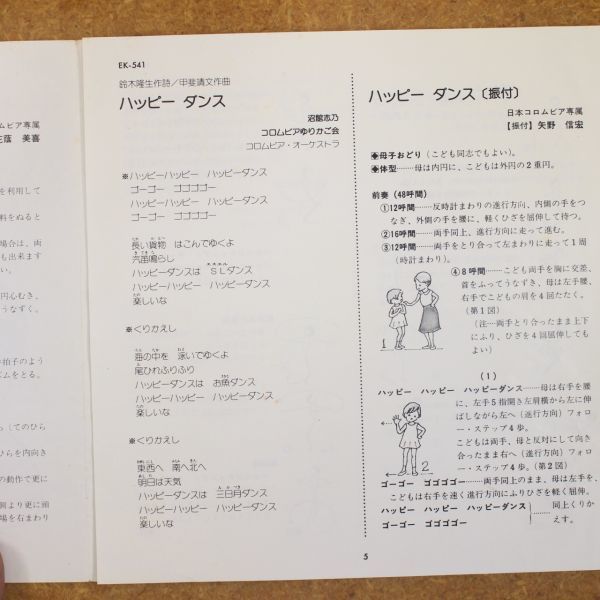 ムビア専属
蔭 美喜
を利用して
料をぬると
場合は、両
も出来ます
円心むき、
うなずく。
拍子のよう
ズムをとる。
っ（てのひら
ひらを内向き
の動作で更に
個より更に頭
場を右まわり
EK-541
鈴木隆生作詩／甲斐靖文作曲
ハッピー ダンス
沼館志乃
コロムビアゆりかご会
コロムビア・オーケストラ
※ハッピーハッピー ハッピーダンス
ゴーゴー ゴゴゴゴー
ハッピーハッピー ハッピーダンス
ゴーゴー ゴゴゴゴー
長い貨物 はこんでゆくよ
汽笛鳴らし
ハッピーダンスは SLダンス
ハッピーハッピー ハッピーダンス
楽しいな
※くりかえし
海の中を 泳いでゆくよ
尾ひれふりふり
ハッピーダンスは お魚ダンス
ハッピーハッピー ハッピーダンス
楽しいな
※くりかえし
東西へ 南へ北へ
明日は天気
ハッピーダンスは 三日月ダンス
ハッピーハッピー ハッピーダンス
楽しいな
ハッピー ダンス〔振付〕
日本コロムビア専属
【振付】矢野 信宏
◆母子おどり（こども同志でもよい）。
◆体型……母は内円に、こどもは外円の2重円。
前奏（48呼間）
①12呼間……反時計まわりの進行方向、内側の手をつ
なぎ、外側の手を腰に、軽くひざを屈伸して待つ。
②16呼間……両手同上、進行方向に走って進む。
③12呼間……両手をとり合って左まわりに走って1周
（時計まわり）。
④8呼間……こども両手を胸に交差、
首をふってうなずき、母は左手腰、
右手でこどもの肩を4回たたく。
（第1図）
（注…両手とり合ったまま上下
にふり、ひざを4回屈伸しても
よい）
1
（1）
ハッピー ハッピー ハッピーダンス……母は右手を腰
に、左手5指開き左肩横から左に伸
ばしながら左へ（進行方向）フォロ
ー・ステップ4歩。
こどもは両手、母と反対にして向き
合ったまま右へ（進行方向）フォロ
ー・ステップ4歩。（第2図）
2
ゴーゴー ゴゴゴゴー……両手同上のまま、母は左手を、
こどもは右手を速く進行方向にふりひざを軽く屈伸。
ハッピー ハッピー ハッピーダンス
ゴーゴー ゴゴゴゴー
……同上くりか
えす。
5